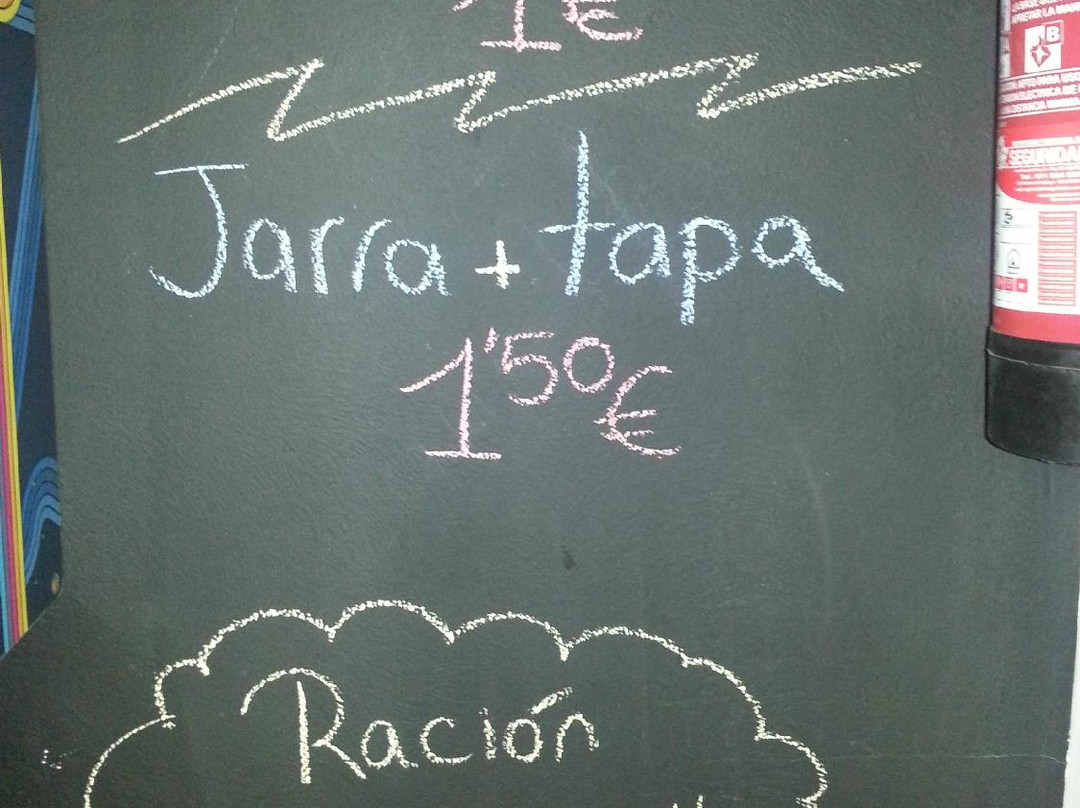 1€
Jarra + tapa
1'50€
Ración
B
SEGURIDAD